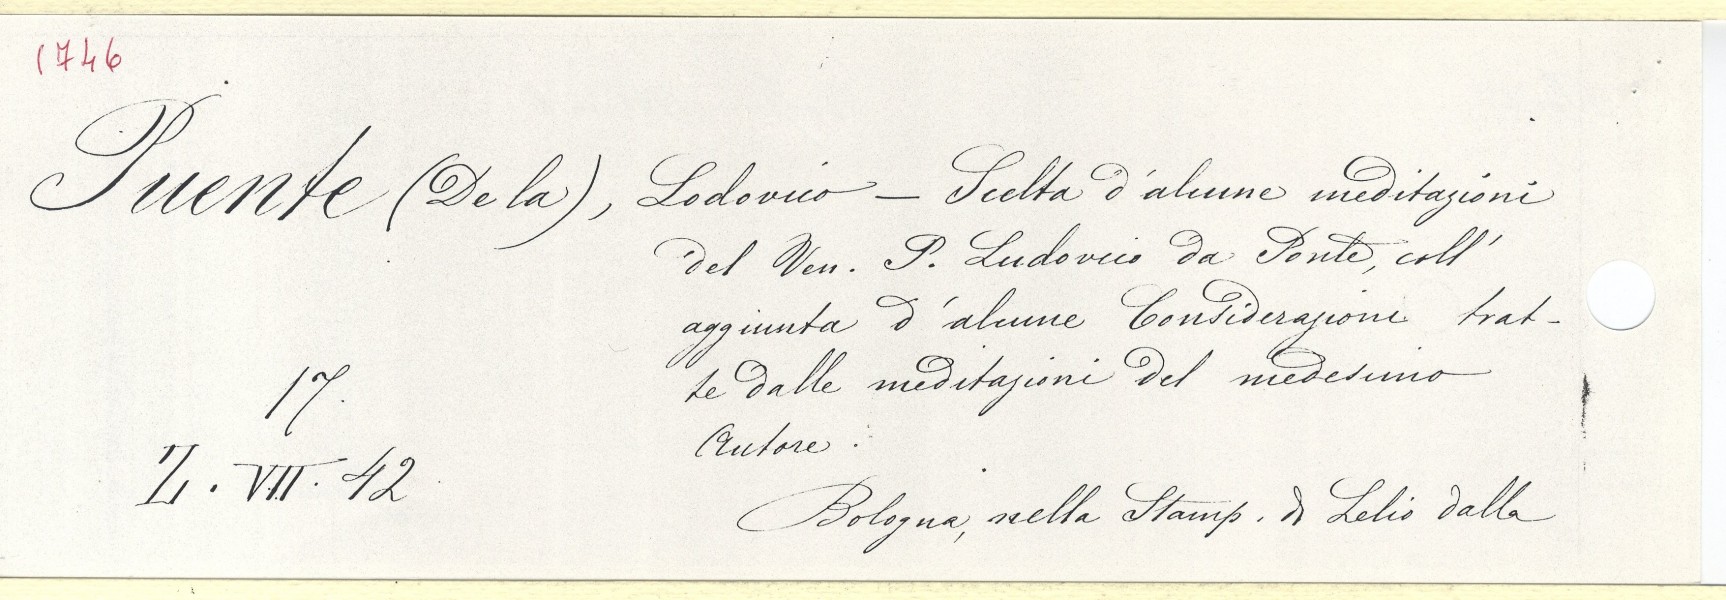 1746
Puente (De la), Lodovico — Scelta d'alcune meditazioni
del Ven. P. Ludovico da Ponte, coll'
aggiunta d'alcune Considerazioni trat-
te dalle meditazioni del medesimo
Autore.
17.
Z. VII. 42
Bologna, nella Stamp. di Lelio dalla